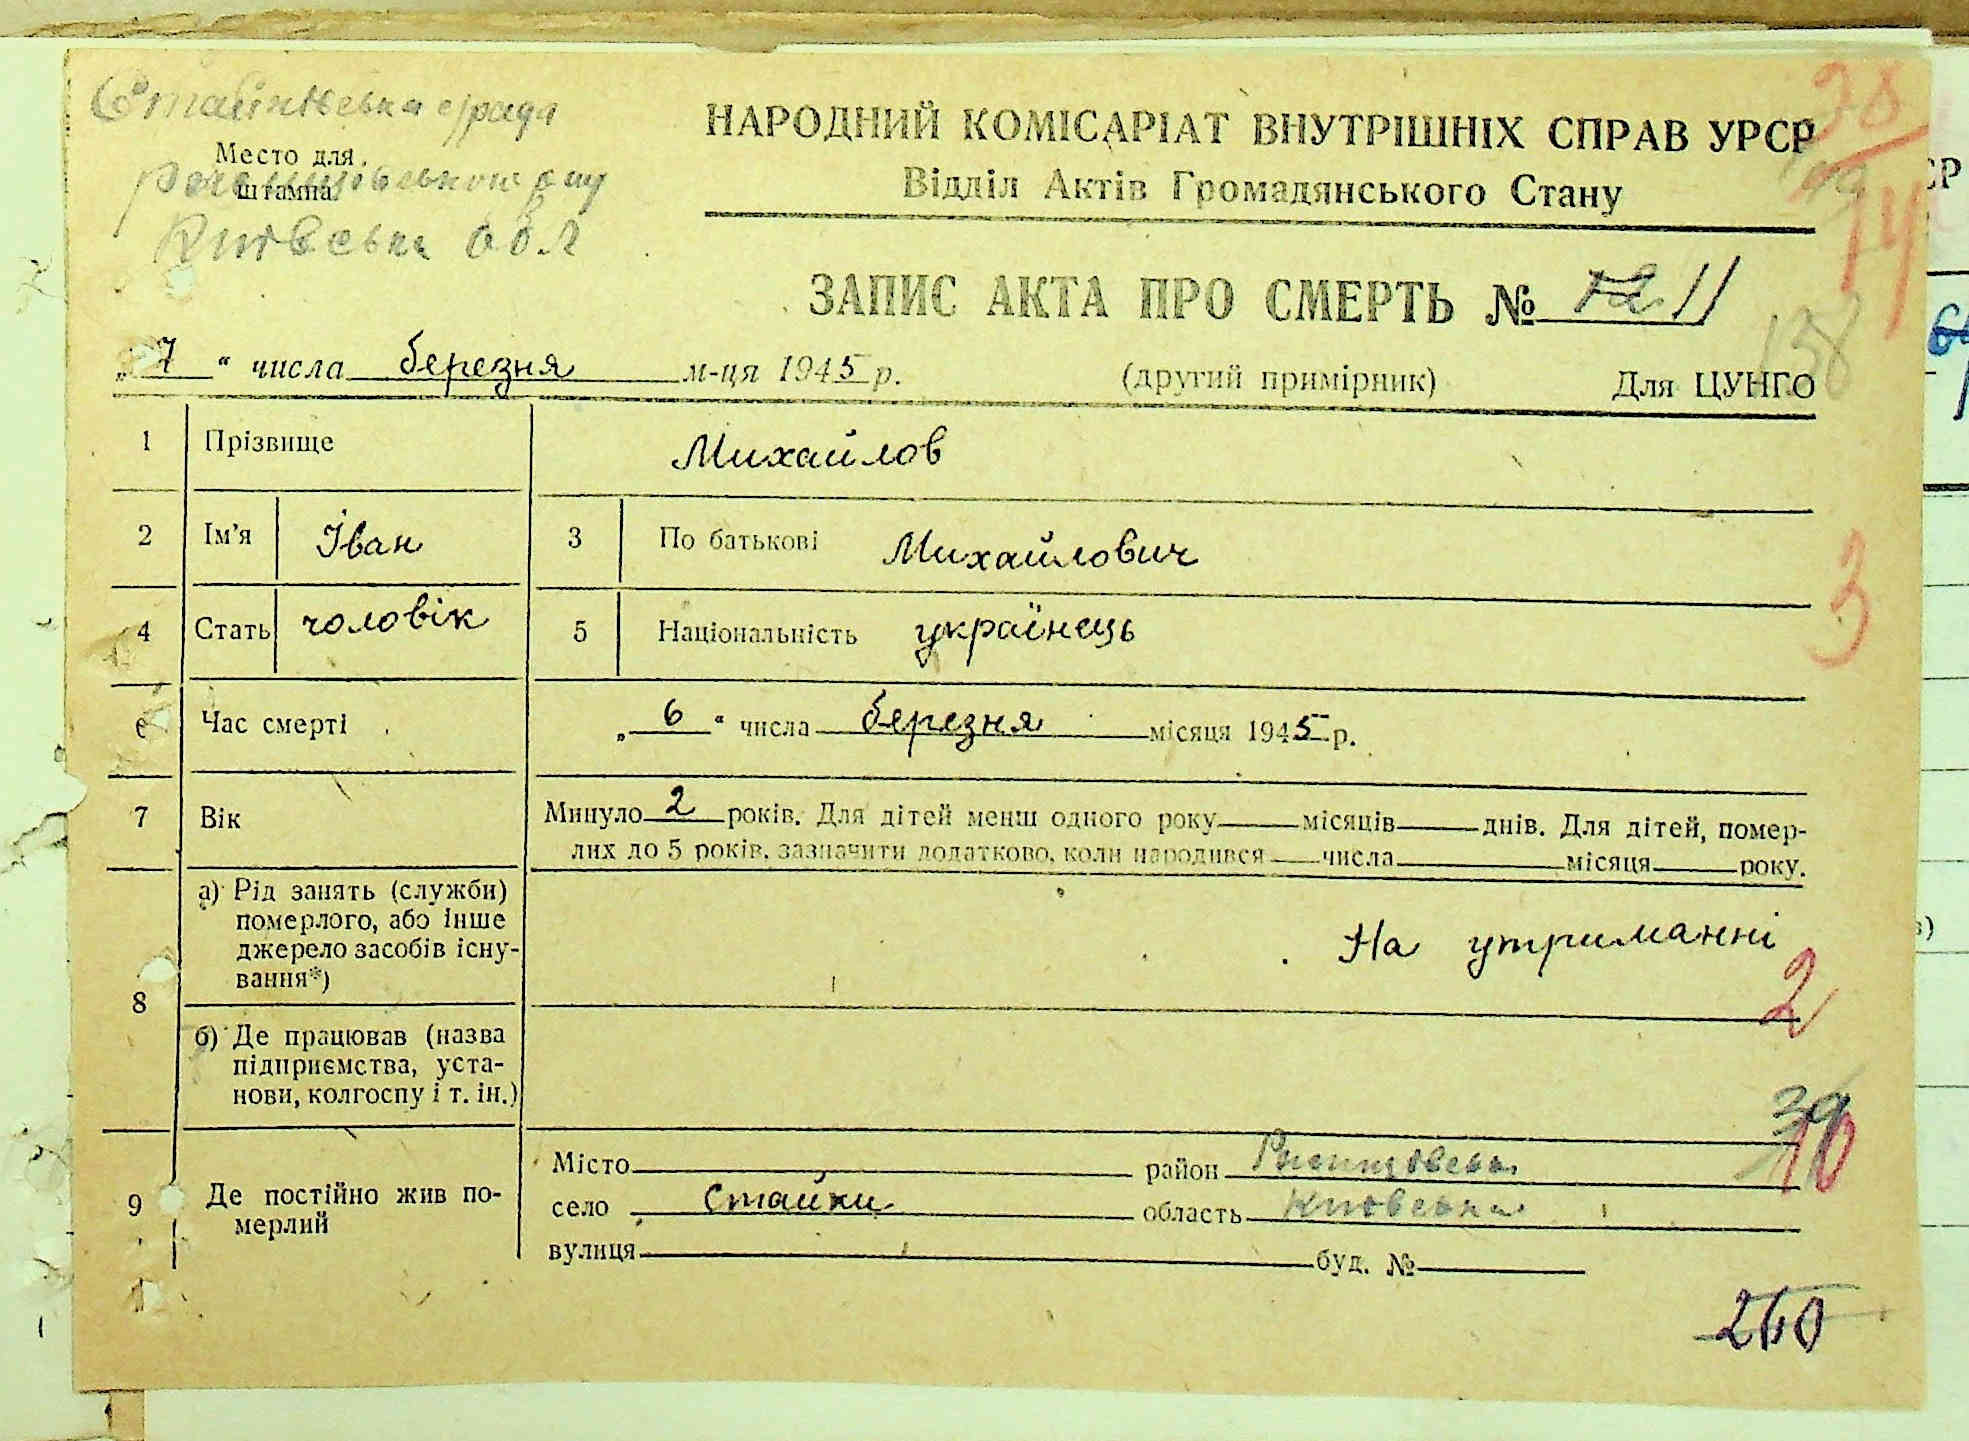 Стайківська с/рада
Место для
штампа
Київська обл
НАРОДНИЙ КОМІСАРІАТ ВНУТРІШНІХ СПРАВ УРСР
Відділ Актів Громадянського Стану
ЗАПИС АКТА ПРО СМЕРТЬ № 12 11
„7“ числа березня м-ця 1945 р. (другий примірник) Для ЦУНГО
1 Прізвище Михайлов
2 Ім'я Іван 3 По батькові Михайлович
4 Стать чоловік 5 Національність українець
6 Час смерті „6“ числа березня місяця 1945 р.
7 Вік Минуло 2 років. Для дітей менш одного року місяців днів. Для дітей, помер-
лих до 5 років, зазначити додатково, коли народився числа місяця року.
8 а) Рід занять (служби)
померлого, або інше
джерело засобів існу-
вання*)
На утриманні
б) Де працював (назва
підприємства, уста-
нови, колгоспу і т. ін.)
9 Де постійно жив по-
мерлий
Місто район
село Стайки область Київська
вулиця буд. №
38
14
158
3
2
39
10
260